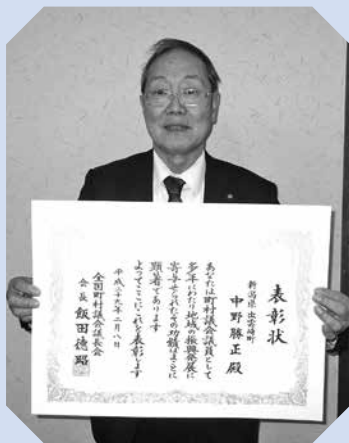 表彰状
新潟県 出雲崎町
中野勝正殿
あなたは町村議会議員として
多年にわたり地域の振興発展に
寄与せられたその功績はまことに
顕著であります
よってここにこれを表彰します
平成二十九年二月八日
全国町村議会議長会
会長 飯田徳昭